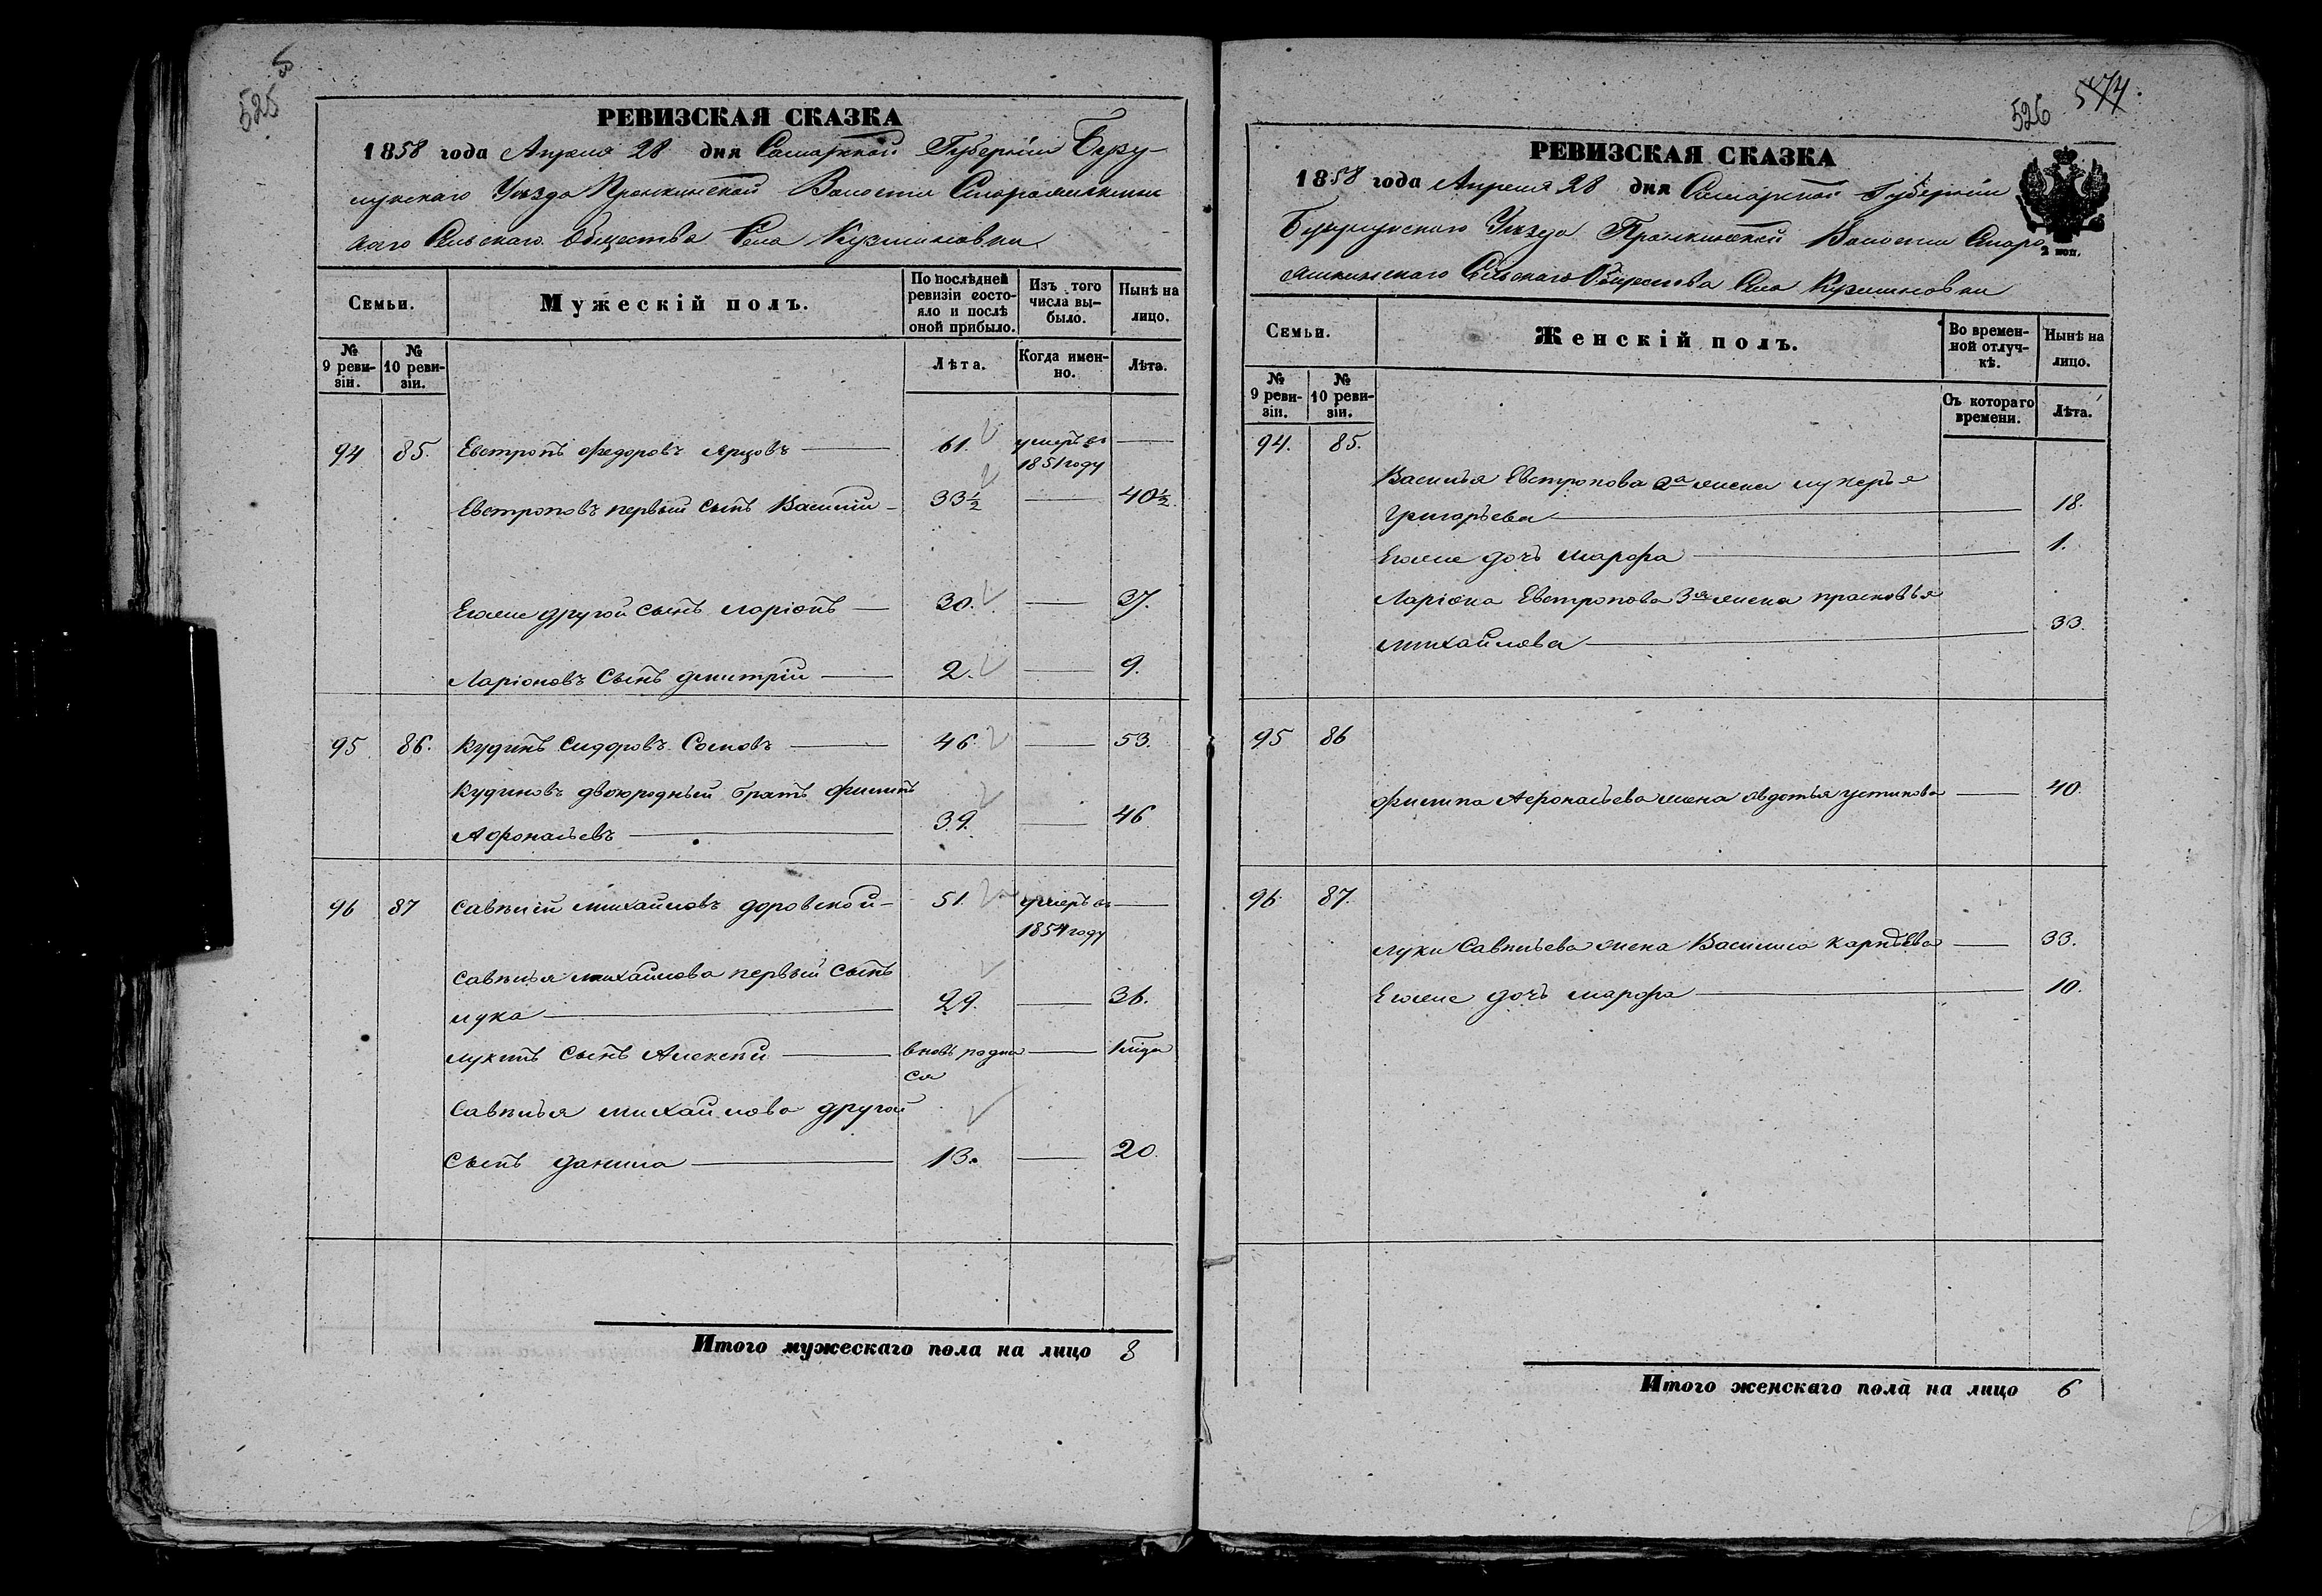 525
РЕВИЗСКАЯ СКАЗКА
1858 года Апреля 28 дня Самарской Губерніи Бузу-
лукскаго Уѣзда Пронкинской Волости Староашкин
скаго Сельскаго Общества Села Кузминовки
Семьи.
Мужескій полъ.
По послѣдней ревизіи состо-
яло и послѣ оной прибыло.
Изъ того числа вы-
было.
Нынѣ на лицо.
№ 9 реви-
зіи.
№ 10 реви-
зіи.
Лѣта.
Когда имен-
но.
Лѣта.
94 85. Евстропъ Федоровъ Ярцовъ 61. умеръ въ
1851 году
Евстроповъ первый сынъ Василій 33½ 40½
Егоже другой сынъ Ларіонъ 30. 37.
Ларіоновъ сынъ Дмитрій 2. 9.
95 86. Кудинъ Сидоровъ Сомовъ 46. 53.
Кудиновъ двоюродный братъ Филипъ
Афонасьевъ 39. 46
96 87 Савелій Михайловъ Доровской 51. умеръ въ
1854 году
Савелья Михайлова первый сынъ
Лука 29. 36.
Лукинъ сынъ Алексѣй вновь родил
ся 1 года
Савелья Михайлова другой
сынъ Данила 13. 20.
Итого мужескаго пола на лицо 8
526 574
РЕВИЗСКАЯ СКАЗКА
1858 года Апреля 28 дня Самарской Губерніи
Бузулукскаго Уѣзда Пронкинской Волости Старо
ашкинскаго Сельскаго Общества Села Кузминовки
2 коп.
Семьи.
Женскій полъ.
Во времен-
ной отлуч-
кѣ.
Нынѣ на лицо.
№ 9 реви-
зіи.
№ 10 реви-
зіи.
Съ котораго
времени.
Лѣта.
94. 85.
Василья Евстропова 2а жена Лукерья
Григорьева 18.
Егоже дочь Марфа 1.
Ларіона Евстропова 3я жена Прасковья
Михайлова 33.
95 86
Филипа Афонасьева жена Авдотья Устинова 40.
96. 87.
Луки Савельева жена Василиса Карпѣева 33.
Егоже дочь Марфа 10.
Итого женскаго пола на лицо 6